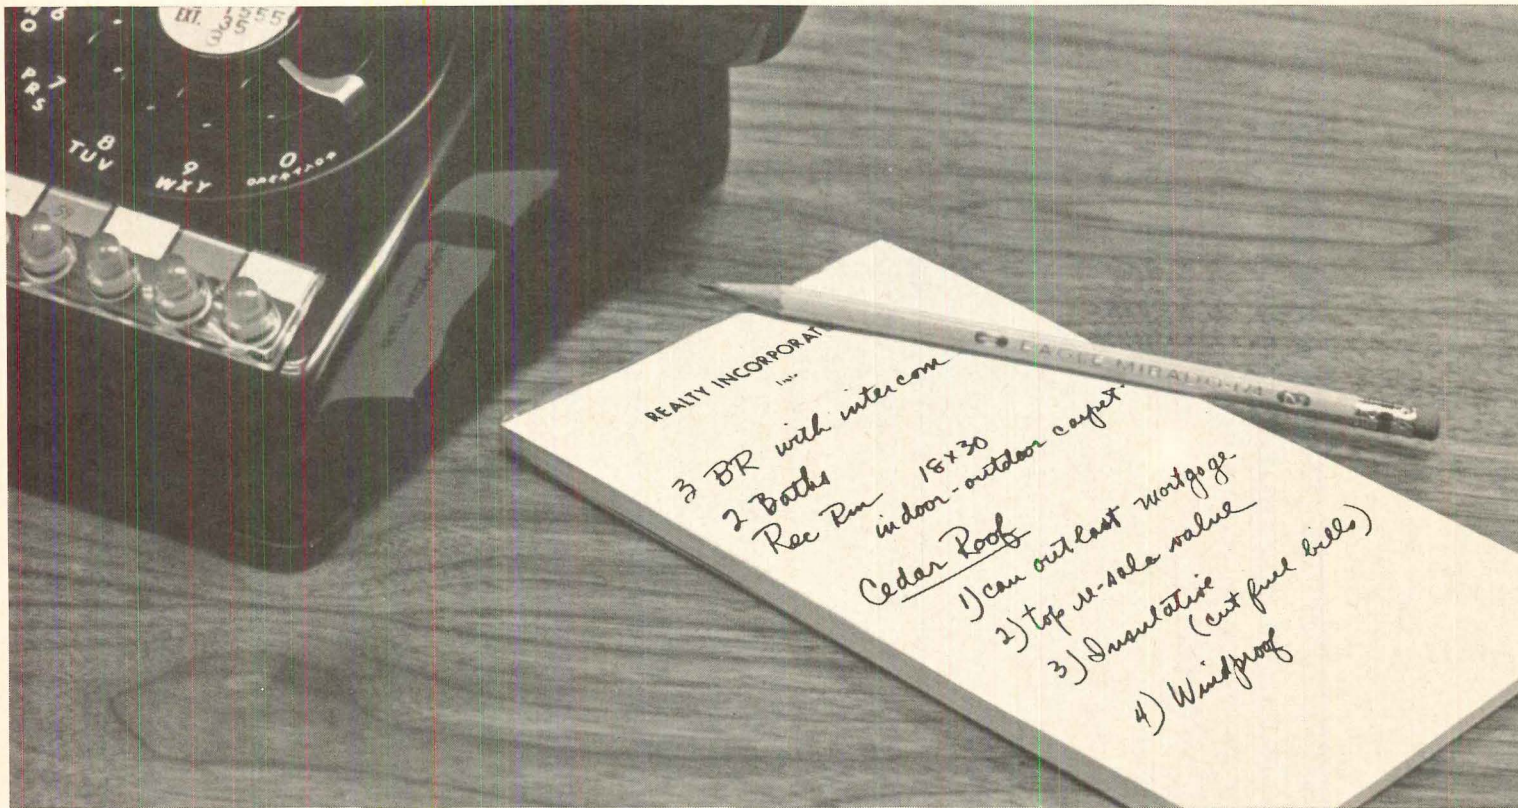 EXT.
6
O
7
PRS
8
TUV
9
WXY
0
OPERATOR
REALTY INCORPORAT
EAGLE MIRADO-174
3 BR with intercom
2 Baths
Rec Rm 18x30
indoor-outdoor carpet
Cedar Roof
1) can outlast mortgage
2) top re-sale value
3) Insulative
(cut fuel bills)
4) Windproof